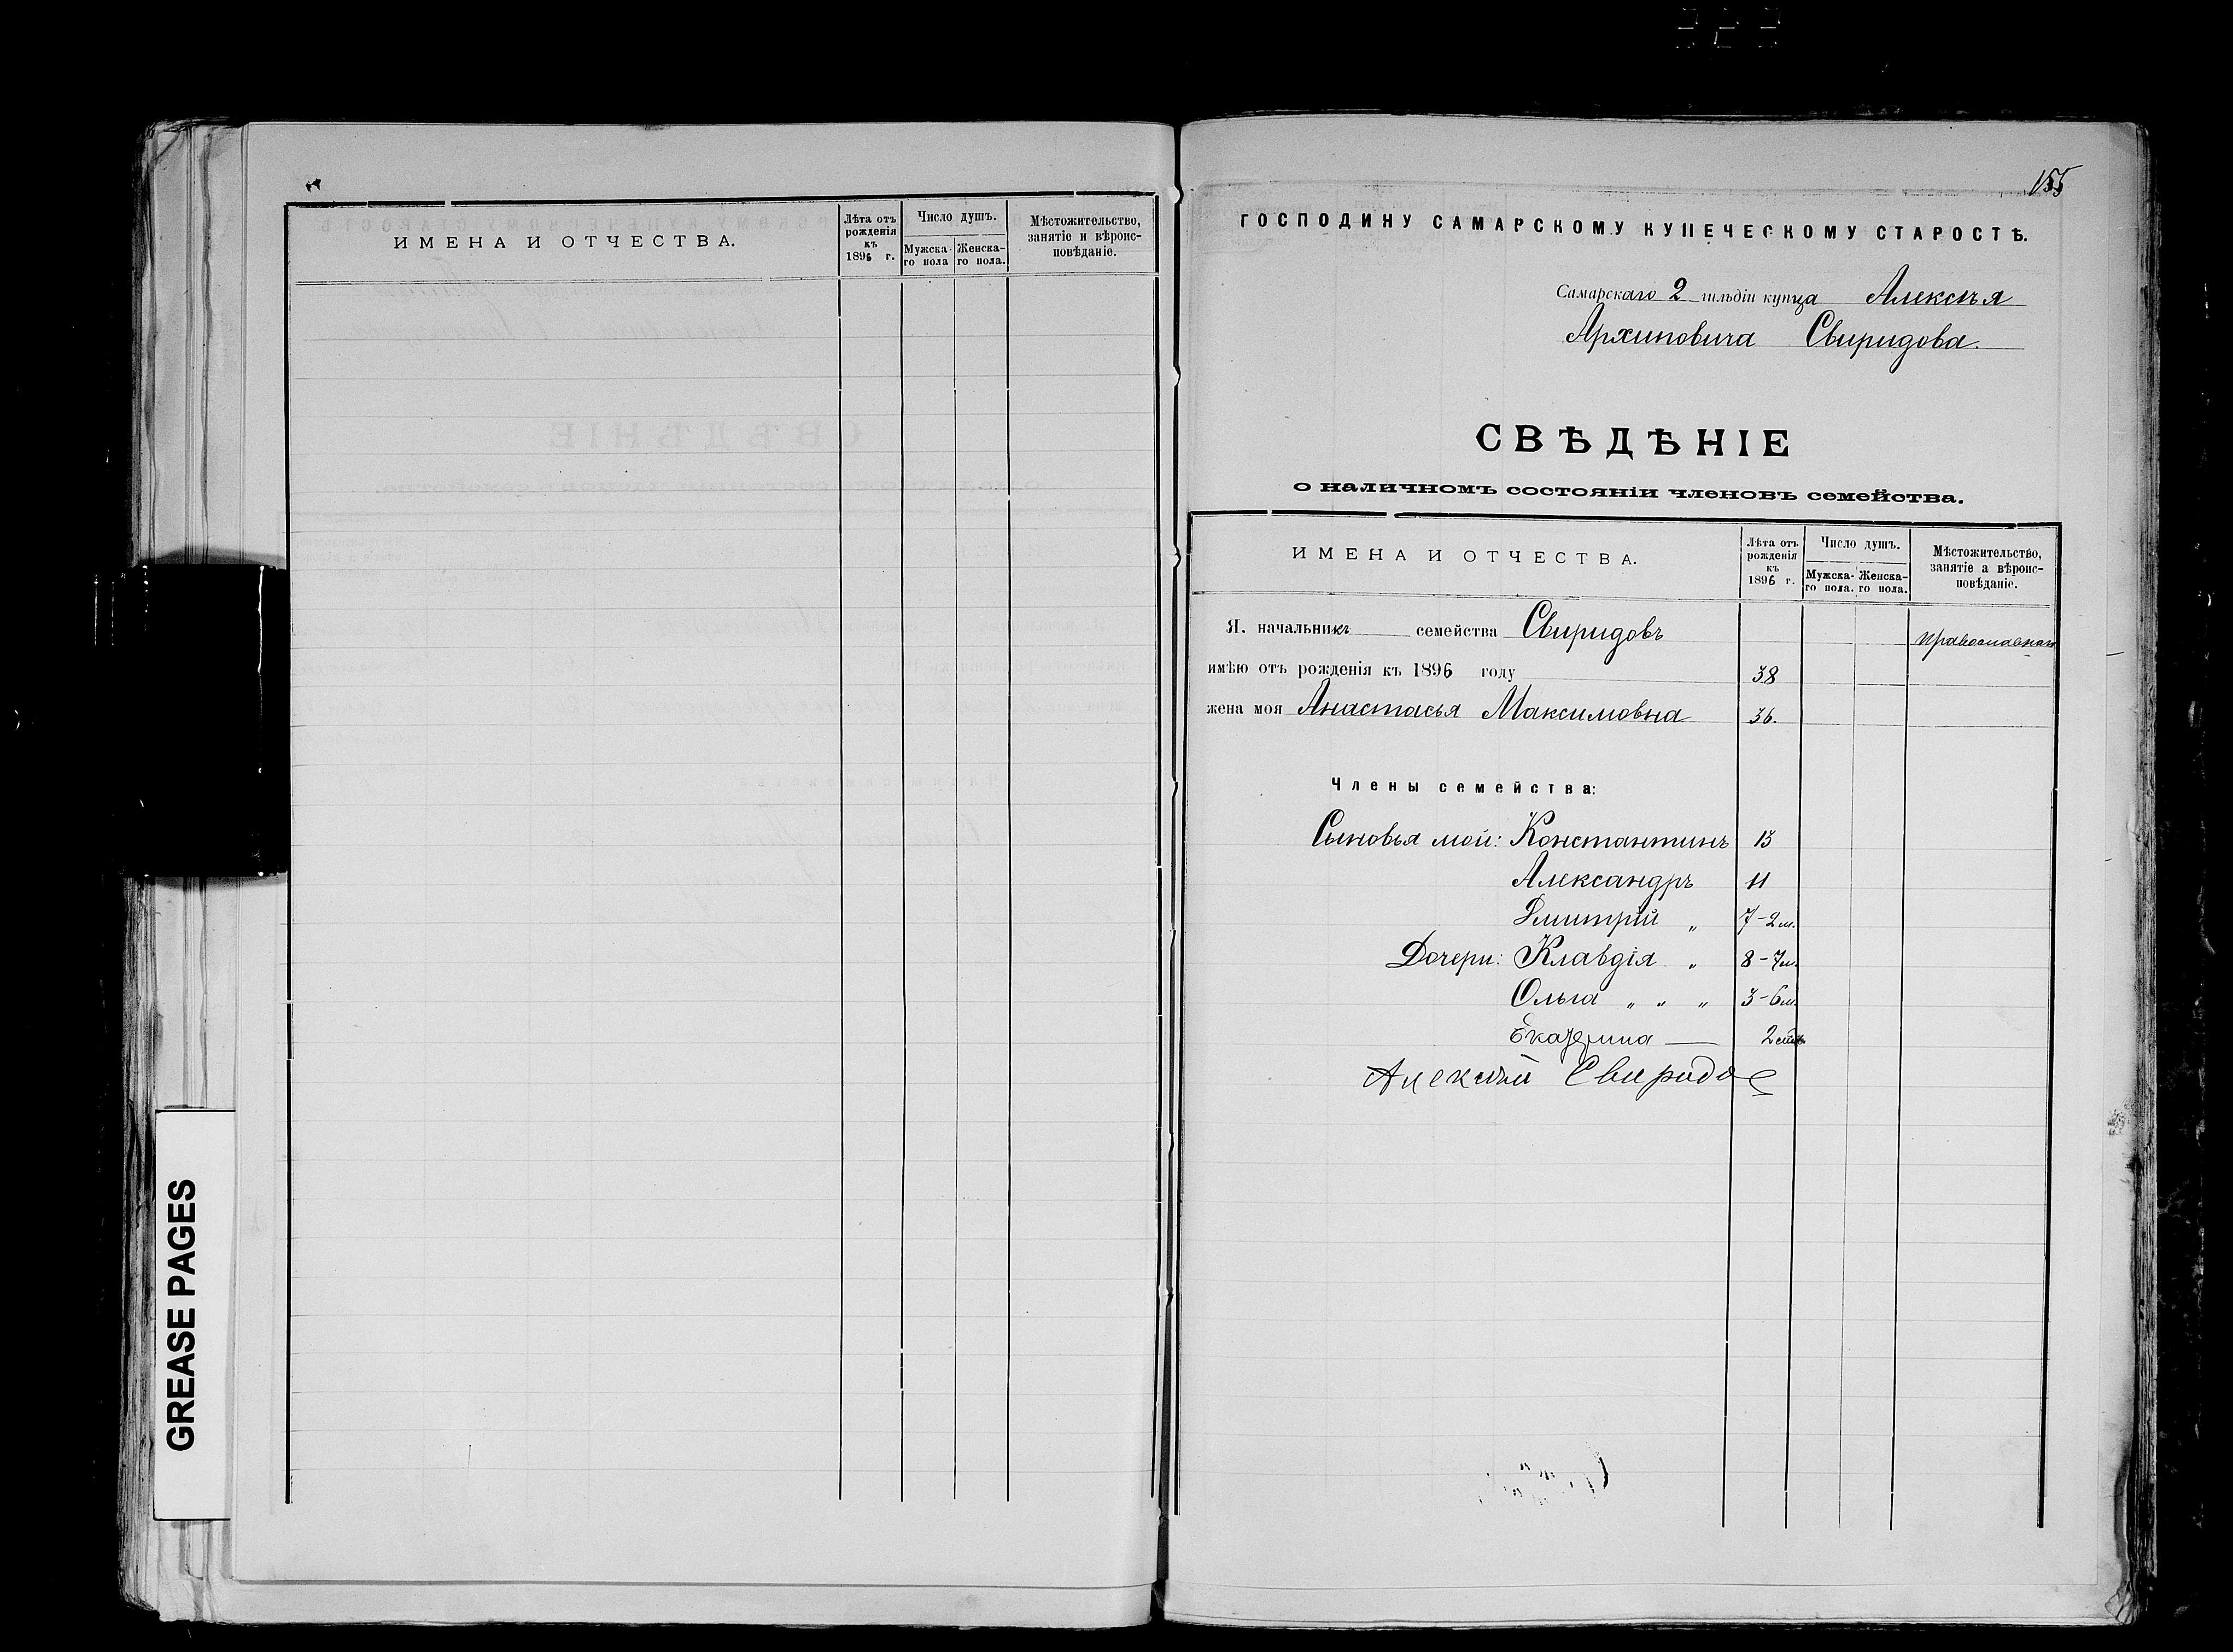 ИМЕНА И ОТЧЕСТВА.
Лѣта отъ рожденія къ 1896 г.
Число душъ.
Мужска-го пола
Женска-го пола.
Мѣстожительство, занятіе и вѣроис-повѣданіе.
GREASE PAGES
155
ГОСПОДИНУ САМАРСКОМУ КУПЕЧЕСКОМУ СТАРОСТѢ.
Самарскаго 2 гильдіи купца Алексѣя
Архиповича Свиридова.
СВѢДѢНІЕ
о наличномъ состояніи членовъ семейства.
ИМЕНА И ОТЧЕСТВА.
Лѣта отъ рожденія къ 1896 г.
Число душъ.
Мужска-го пола.
Женска-го пола.
Мѣстожительство, занятіе а вѣроис-повѣданіе.
Я. начальникъ семейства Свиридовъ православнаго
имѣю отъ рожденія къ 1896 году 38
жена моя Анастасья Максимовна 36.
Члены семейства:
Сыновья мои: Константинъ 13
Александръ 11
Дмитрій „ 7-2м.
Дочери: Клавдія „ 8-7м.
Ольга „ „ „ 3-6м.
Екатерина — 2
Алексѣй Свиридов